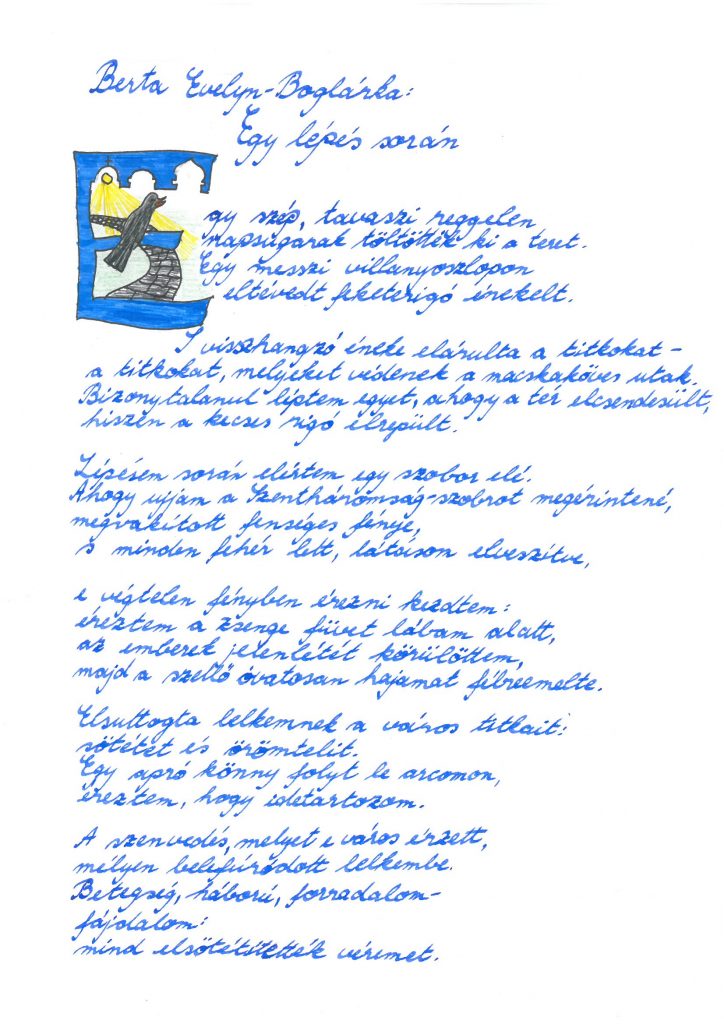 Berta Evelyn-Boglárka:
Egy lépés során
Egy szép, tavaszi reggelen
napsugarak töltötték ki a teret.
Egy messzi villanyoszlopon
eltévedt feketerigó énekelt.
S visszhangzó éneke elárulta a titkokat –
a titkokat, melyeket védenek a macskaköves utak.
Bizonytalanul léptem egyet, ahogy a tér elcsendesült,
hiszen a kecses rigó elrepült.
Lépésem során elértem egy szobor elé.
Ahogy ujjam a Szentháromság-szobrot megérintené,
megvakított fenséges fénye,
s minden fehér lett, látásom elveszítve,
e végtelen fényben érezni kezdtem:
éreztem a zsenge füvet lábam alatt,
az emberek jelenlétét körülöttem,
majd a szellő óvatosan hajamat félreemelte.
Elsuttogta lelkemnek a város titkait:
sötétét és örömtelit.
Egy apró könny folyt le arcomon,
éreztem, hogy idetartozom.
A szenvedés, melyet e város érzett,
mélyen belefúródott lelkembe.
Betegség, háború, forradalom–
fájdalom:
mind elsötétítették véremet.